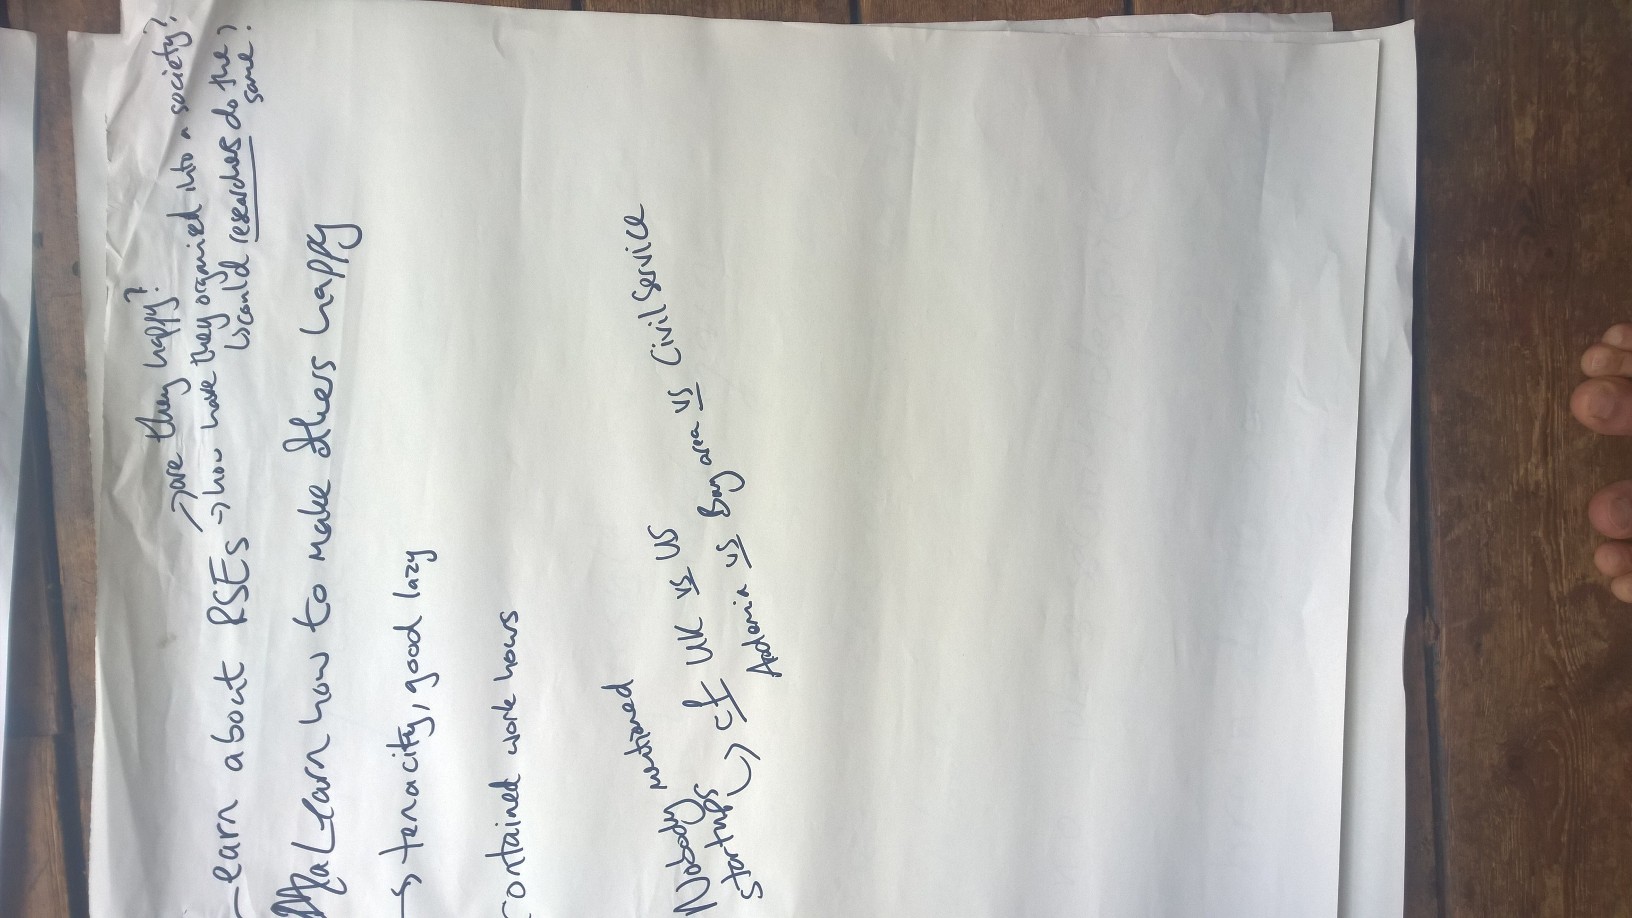 Learn about RSEs
→ are they happy?
→ how have they organised into a society?
↳ could researchers do the same?
Learn how to make others happy
→ tenacity, good lazy
contained work hours
Nobody mentioned
startups
↳ cf UK vs US
Academia vs Bay area vs Civil Service